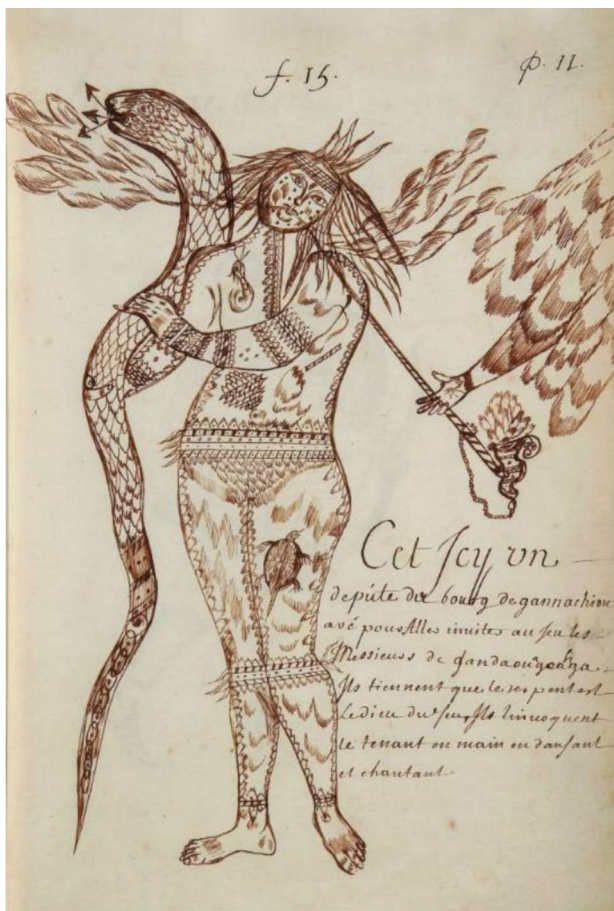 f. 15.
p. 11.
Cet Jcy un
depúte du bourg de gannachiou
avé pour Aller inuiter au Jeu les
Messieurs de gandaouagoahga
Ils tiennent que le serpent est
Le dieu du feu, Ils linuoquent
le tenant en main en dansant
et chantant